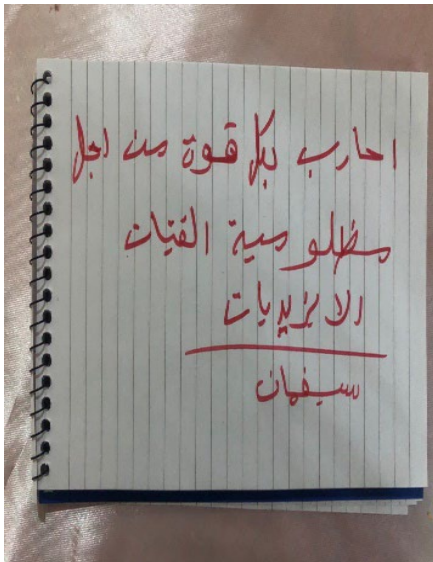 احارب بكل قوة من اجل
مظلومية الفتيات
الايزيديات
سيفمان